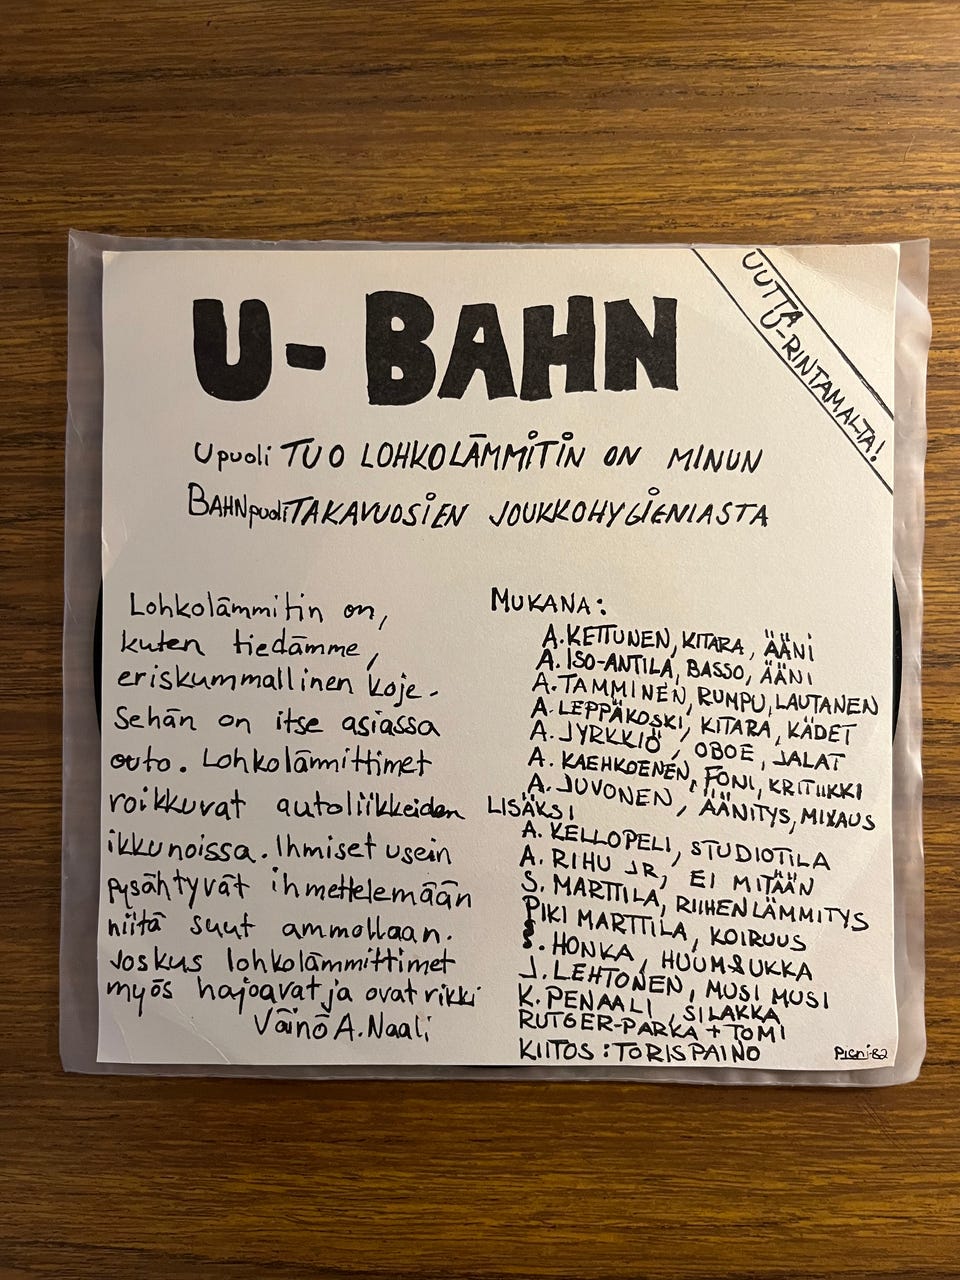 U-BAHN
UUTTA
U-RINTAMALTA!
Upuoli TUO LOHKOLÄMMITIN ON MINUN
BAHNpuoli TAKAVUOSIEN JOUKKOHYGIENIASTA
Lohkolämmitin on,
kuten tiedämme,
eriskummallinen koje.
Sehän on itse asiassa
outo. Lohkolämmittimet
roikkuvat autoliikkeiden
ikkunoissa. Ihmiset usein
pysähtyvät ihmettelemään
niitä suut ammollaan.
Joskus lohkolämmittimet
myös hajoavat ja ovat rikki
Väinö A. Naali
MUKANA:
A. KETTUNEN, KITARA, ÄÄNI
A. ISO-ANTILA, BASSO, ÄÄNI
A. TAMMINEN, RUMPU, LAUTANEN
A. LEPPÄKOSKI, KITARA, KÄDET
A. JYRKKIÖ, OBOE, JALAT
A. KAEHKOENEN, FÖNI, KRITIIKKI
A. JUVONEN, ÄÄNITYS, MIXAUS
LISÄKSI
A. KELLOPELI, STUDIOTILA
A. RIHU JR, EI MITÄÄN
S. MARTTILA, RIIHENLÄMMITYS
PIKI MARTTILA, KOIRUUS
S. HONKA, HUUM&UKKA
J. LEHTONEN, MUSI MUSI
K. PENAALI, SILAKKA
RUTGER-PARKA + TOMI
KIITOS: TORISPAINO